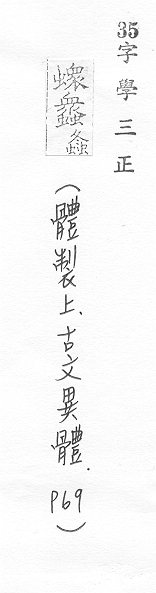 35字學三正
䗥螽
(體製上、古文異體. P69)